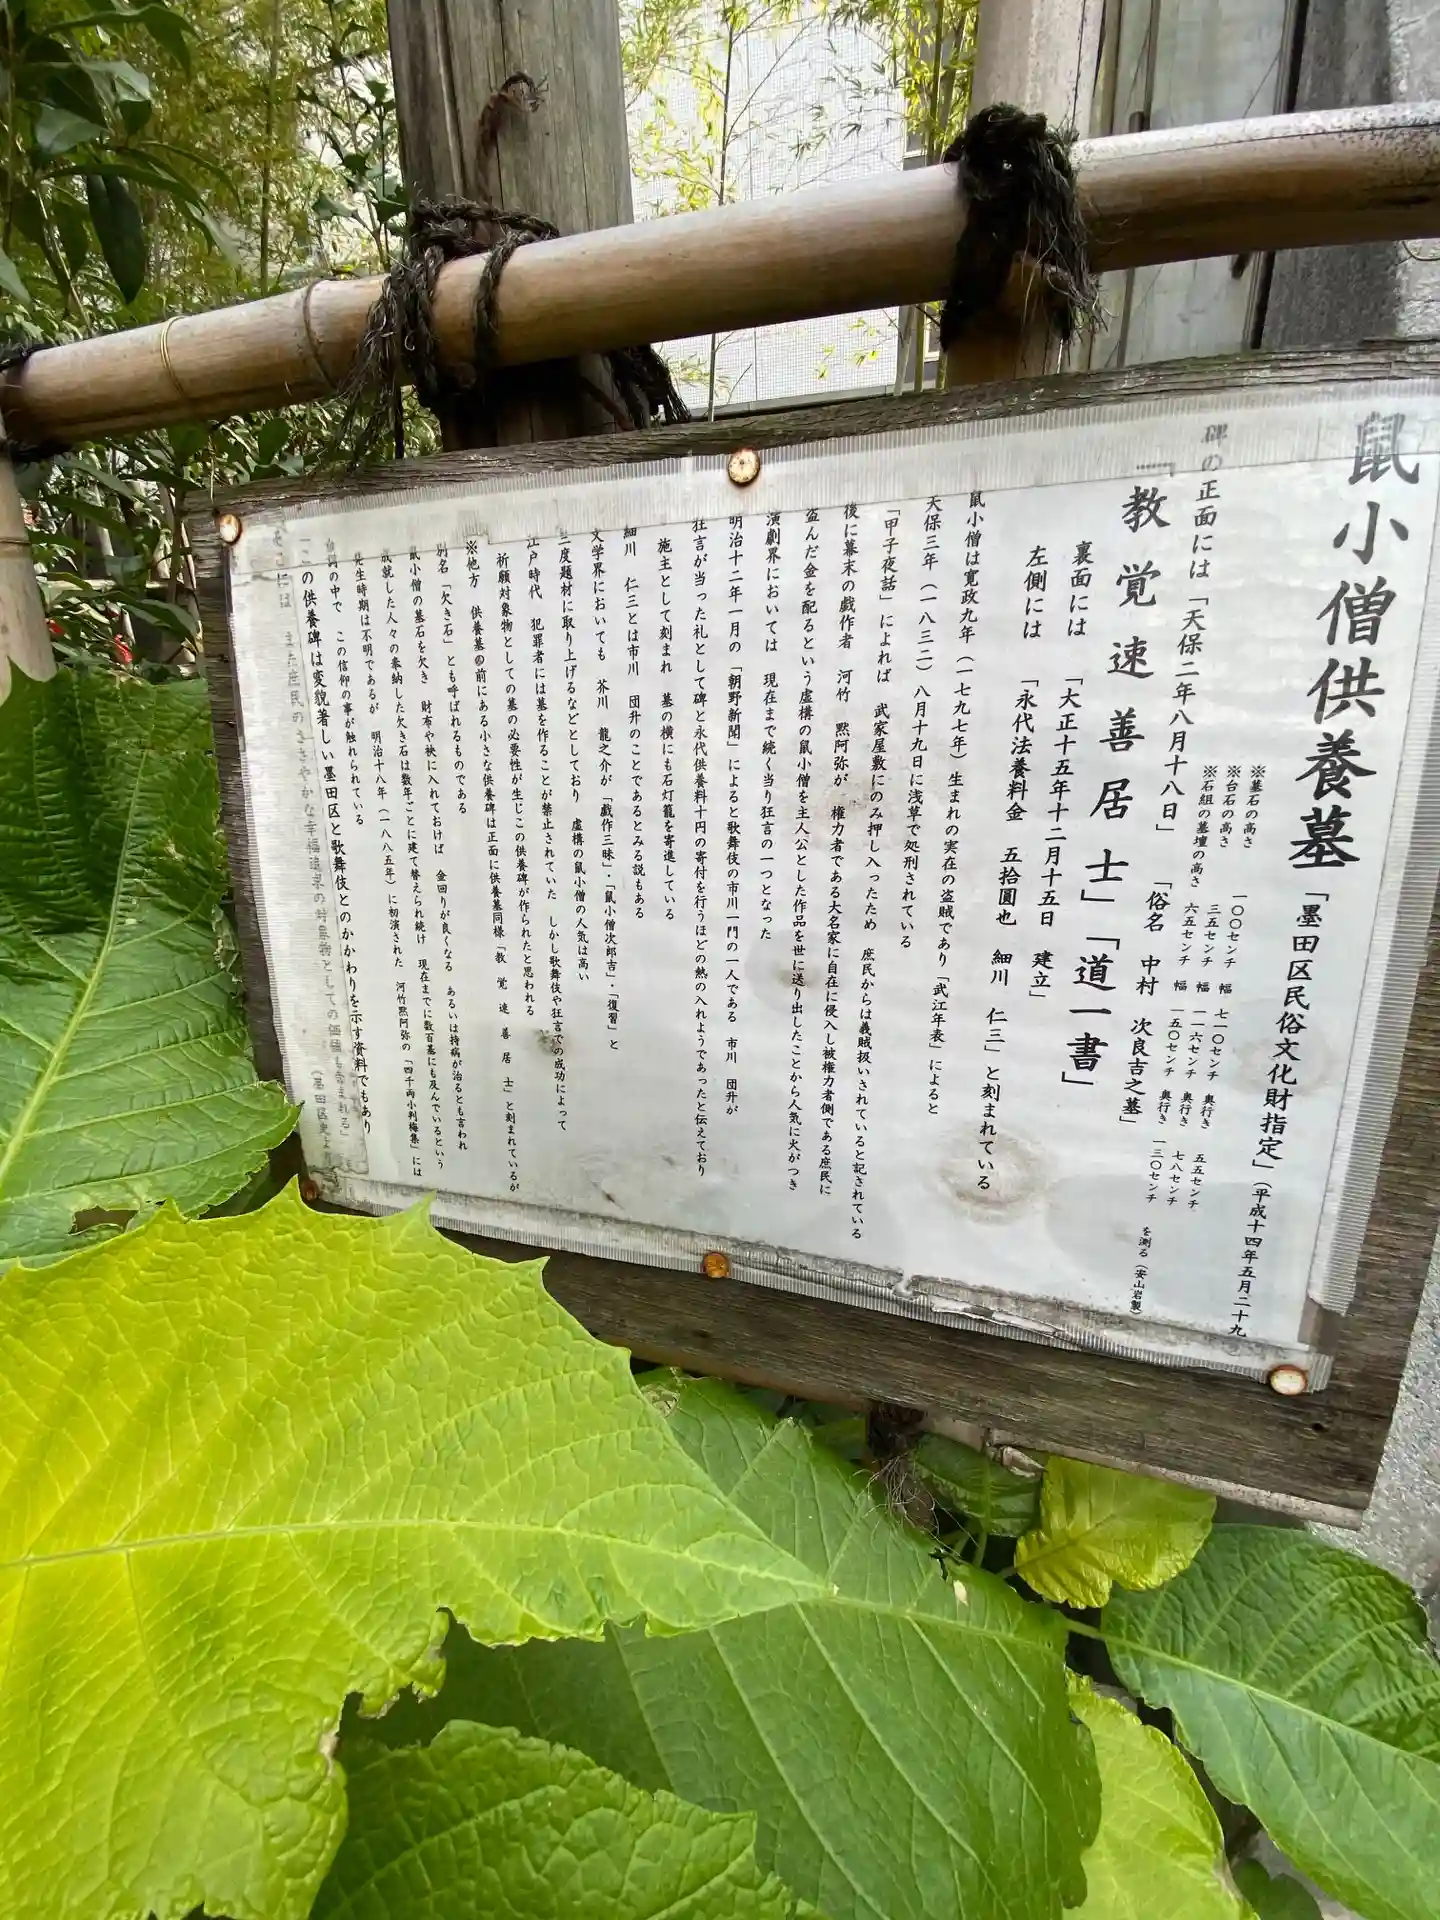 鼠小僧供養墓「墨田区民俗文化財指定」（平成十四年五月二十九
※墓石の高さ 一〇〇センチ 幅 七一〇センチ 奥行き 五五センチ
※台石の高さ 三五センチ 幅 一一六センチ 奥行き 七八センチ
※石組の墓壇の高さ 六五センチ 幅 一五〇センチ 奥行き 一三〇センチ を測る（安山岩製）
碑の正面には「天保二年八月十八日」「俗名 中村 次良吉之墓」
「教覚速善居士」「道一書」
裏面には「大正十五年十二月十五日 建立」
左側には「永代法養料金 五拾圓也 細川 仁三」と刻まれている
鼠小僧は寛政九年（一七九七年）生まれの実在の盗賊であり「武江年表」によると
天保三年（一八三二）八月十九日に浅草で処刑されている
「甲子夜話」によれば 武家屋敷にのみ押し入ったため 庶民からは義賊扱いされていると記されている
後に幕末の戯作者 河竹 黙阿弥が 権力者である大名家に自在に侵入し被権力者側である庶民に
盗んだ金を配るという虚構の鼠小僧を主人公とした作品を世に送り出したことから人気に火がつき
演劇界においては 現在まで続く当り狂言の一つとなった
明治十二年一月の「朝野新聞」によると歌舞伎の市川一門の一人である 市川 団升が
狂言が当った礼として碑と永代供養料十円の寄付を行うほどの熱の入れようであったと伝えており
施主として刻まれ 墓の横にも石灯籠を寄進している
細川 仁三とは市川 団升のことであるとみる説もある
文学界においても 芥川 龍之介が「戯作三昧」・「鼠小僧次郎吉」・「復習」と
三度題材に取り上げるなどとしており 虚構の鼠小僧の人気は高い
江戸時代 犯罪者には墓を作ることが禁止されていた しかし歌舞伎や狂言での成功によって
祈願対象物としての墓の必要性が生じこの供養碑が作られたと思われる
※他方 供養墓の前にある小さな供養碑は正面に供養墓同様「教 覚 速 善 居 士」と刻まれているが
別名「欠き石」とも呼ばれるものである
鼠小僧の墓石を欠き 財布や袂に入れておけば 金回りが良くなる あるいは持病が治るとも言われ
成就した人々の奉納した欠き石は数年ごとに建て替えられ続け 現在までに数百基にも及んでいるという
発生時期は不明であるが 明治十八年（一八八五年）に初演された 河竹黙阿弥の「四千両小判梅葉」には
台詞の中で この信仰の事が触れられている
「この供養碑は変貌著しい墨田区と歌舞伎とのかかわりを示す資料でもあり
また庶民のささやかな幸福追求の対象物としての価値も含まれる」
（墨田区史より